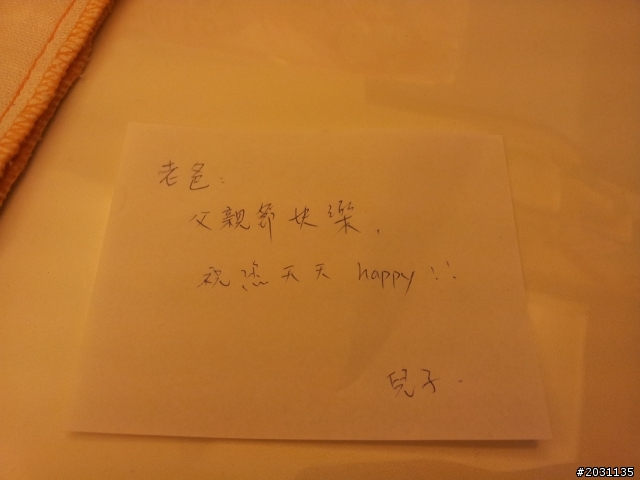 老爸：
父親節快樂，
祝您天天 happy!!
兒子.
#2031135